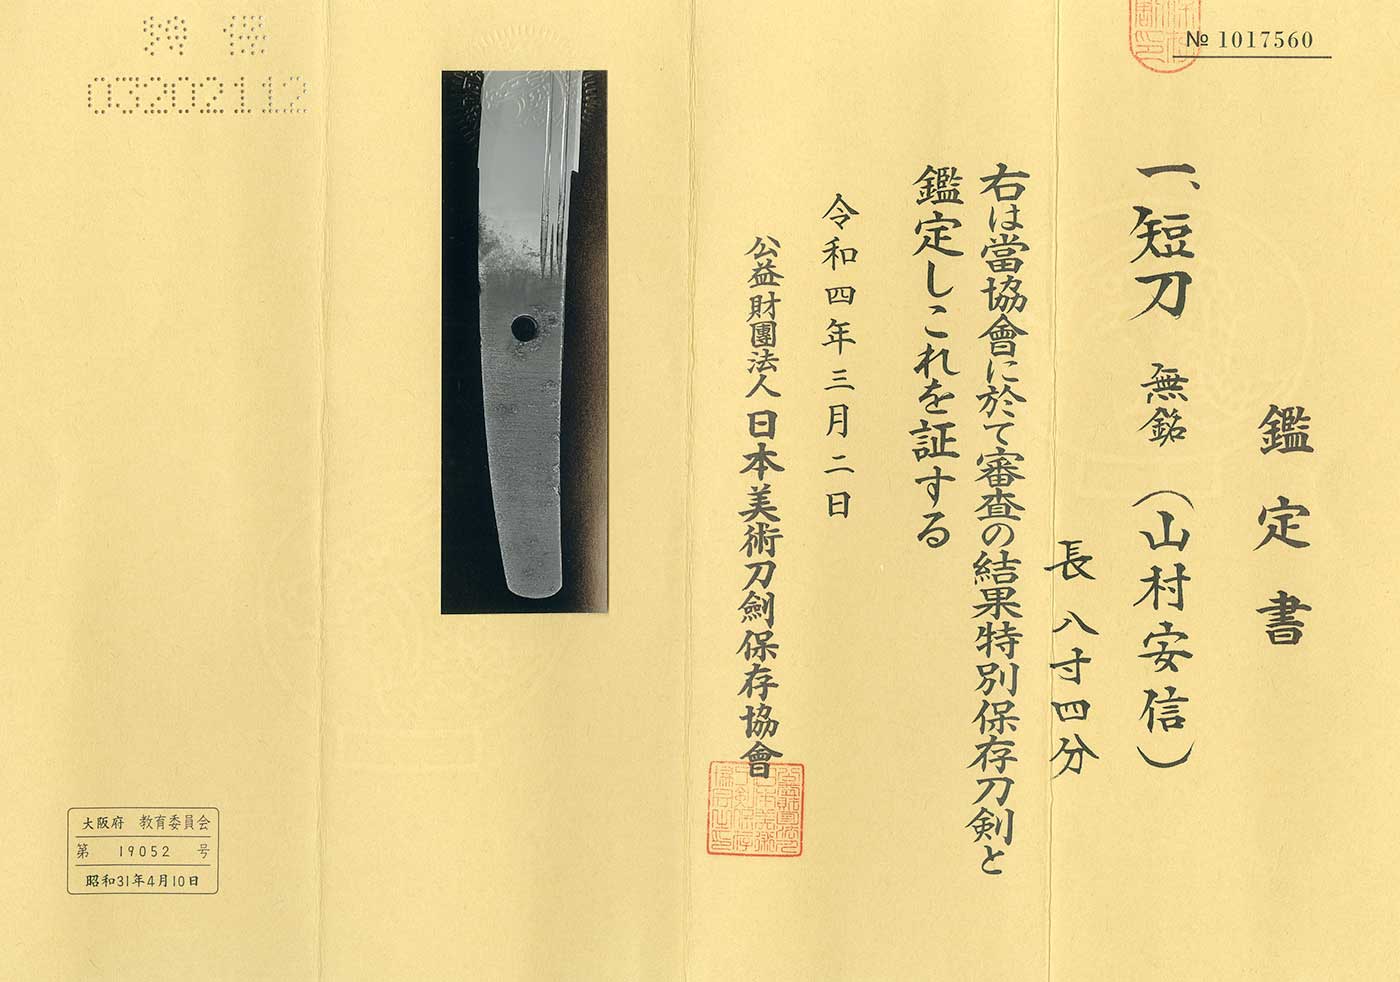 № 1017560
鑑定書
一、短刀 無銘 (山村安信)
長 八寸四分
右は當協會に於て審査の結果特別保存刀剣と
鑑定しこれを証する
令和四年三月二日
公益財團法人 日本美術刀劍保存協會
特保
03202112
大阪府 教育委員会
第 19052 号
昭和31年4月10日